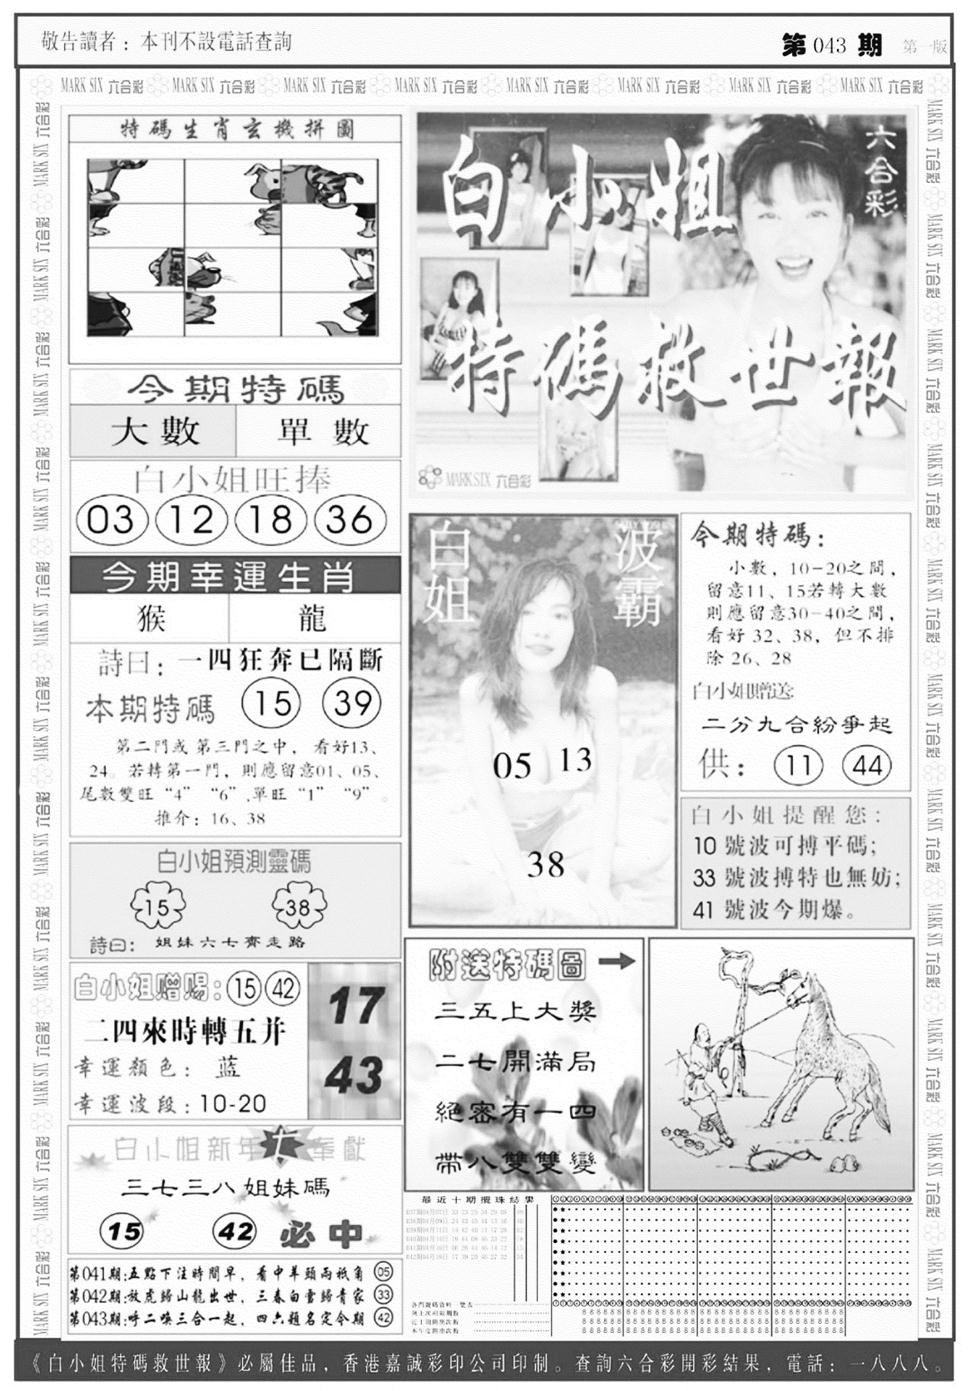 敬告讀者：本刊不設電話查詢
第 043 期 第一版
MARK SIX 六合彩 MARK SIX 六合彩 MARK SIX 六合彩 MARK SIX 六合彩 MARK SIX 六合彩 MARK SIX 六合彩 MARK SIX 六合彩 MARK SIX 六合彩
特碼生肖玄機拼圖
今期特碼
大數 單數
白小姐旺捧
03 12 18 36
今期幸運生肖
猴 龍
詩曰：一四狂奔已隔斷
本期特碼 15 39
第二門或第三門之中，看好13、
24。若轉第一門，則應留意01、05、
尾數雙旺“4”“6”,單旺“1”“9”。
推介：16、38
白小姐預測靈碼
15 38
詩曰：姐妹六七齊走路
白小姐贈賜：15 42
二四來時轉五并
幸運顏色：蓝
幸運波段：10-20
17
43
白小姐新年大奉獻
三七三八姐妹碼
15 42 必中
第041期:五點下注時間早，看中羊頭两衹角 05
第042期:放虎歸山龍出世，三春白雪歸青家 33
第043期:呼二喚三合一起，四六題名定今期 42
六合彩
白小姐
特碼救世報
MARK SIX 六合彩
白姐
波霸
05 13
38
今期特碼：
小數，10-20之間，
留意11、15若轉大數
則應留意30-40之間，
看好 32、38，但不排
除 26、28
白小姐贈送:
二分九合紛爭起
供：11 44
白小姐提醒您：
10 號波可搏平碼;
33 號波搏特也無妨;
41 號波今期爆。
附送特碼圖
三五上大獎
二七開滿局
絕密有一四
帶八雙雙變
最近十期攪珠結果
《白小姐特碼救世報》必屬佳品，香港嘉誠彩印公司印制。查詢六合彩開彩結果，電話：一八八八。